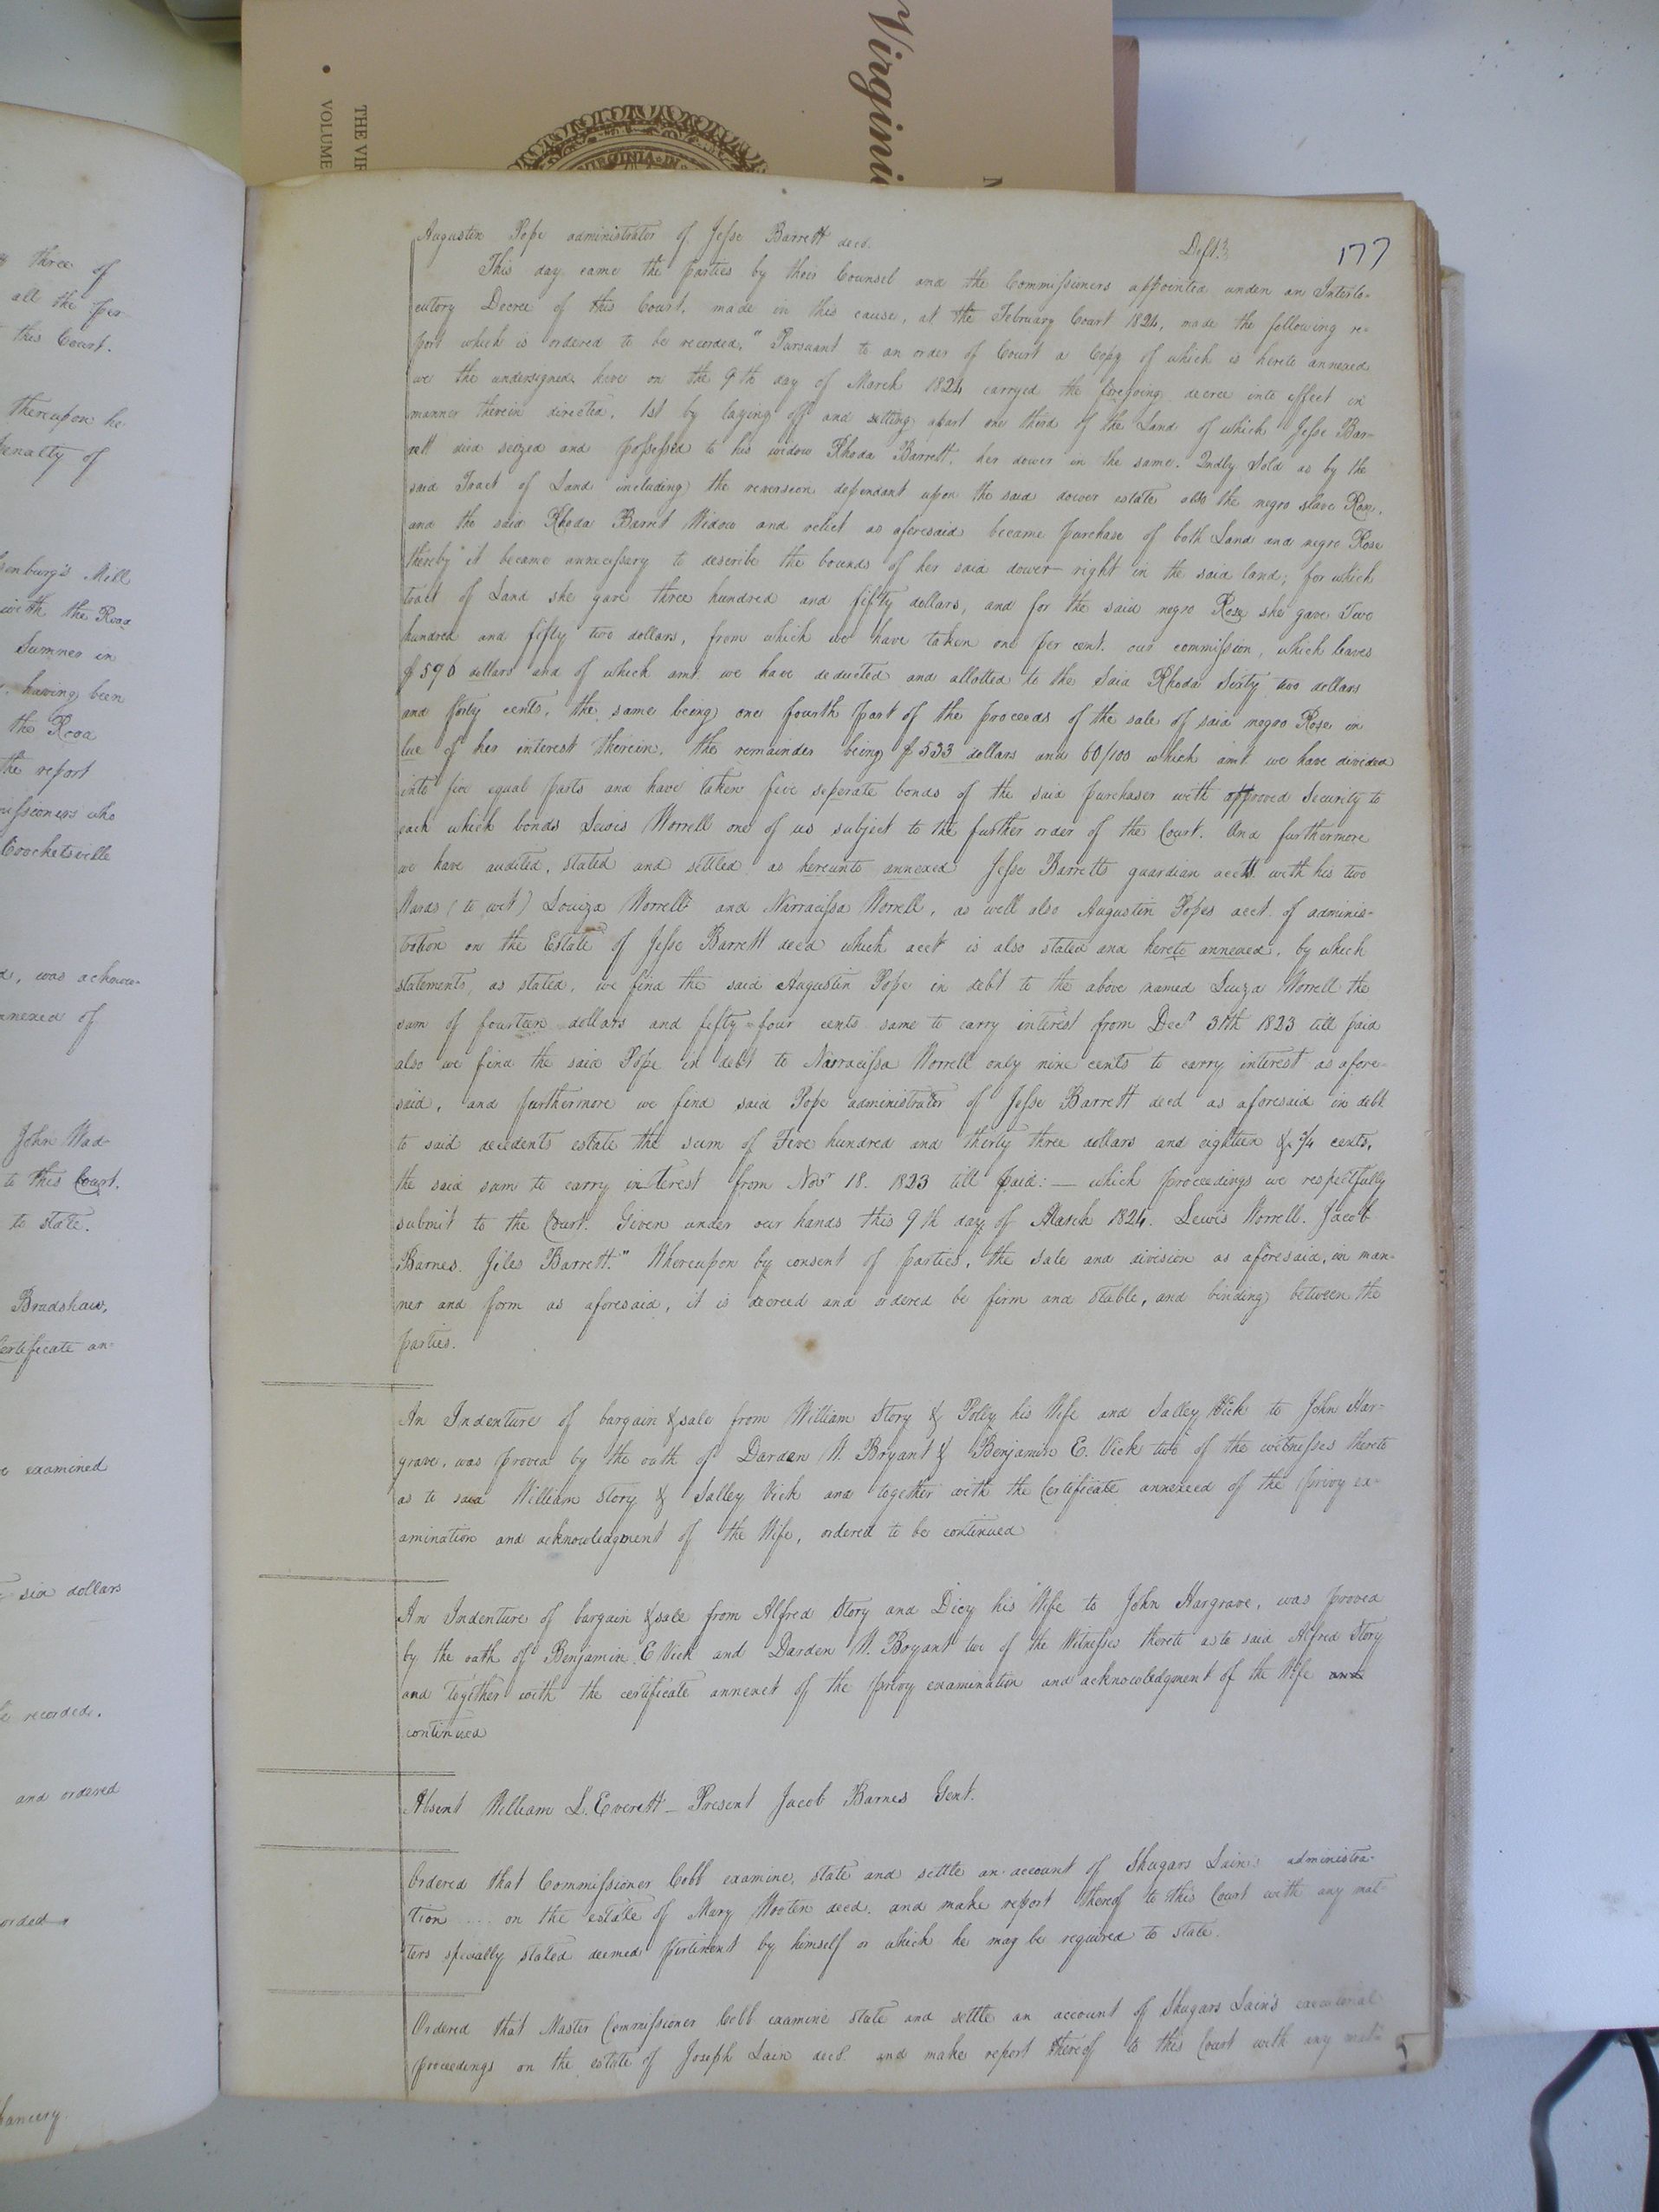 Virgini
THE VIR
VOLUME
VIRGINIA
N
177
Augustin Pope administrator of Jesse Barrett decd. Deft.
This day came the parties by their Counsel and the Commissioners appointed under an Interlo-
cutory Decree of this Court, made in this cause, at the February Court 1824, made the following re-
port which is ordered to be recorded, "Pursuant to an order of Court a Copy of which is hereto annexed
we the undersigned have on the 9th day of March 1824 carryed the foregoing decree into effect in
manner therein directed, 1st by laying off and setting apart one third of the Land of which Jesse Bar-
rett died seized and possessed to his widow Rhoda Barrett, her dower in the same. 2ndly Sold as by the
said Tract of Land including the reversion dependant upon the said dower estate also the negro slave Rose,
and the said Rhoda Barret Widow and relict as aforesaid became purchase of both Land and negro Rose
thereby it became unnecessary to describe the bounds of her said dower right in the said land; for which
tract of Land she gave three hundred and fifty dollars, and for the said negro Rose she gave Two
hundred and fifty two dollars, from which we have taken one per cent. our commission, which leaves
$596 dollars and of which amt. we have deducted and allotted to the Said Rhoda Sixty two dollars
and forty cents, the same being one fourth part of the proceeds of the sale of said negro Rose in
lue of her interest therein, the remainder being $533 dollars and 60/100 which amt. we have divided
into five equal parts and have taken five seperate bonds of the said purchaser with approved Security to
each which bonds Lewis Worrell one of us subject to the further order of the Court. And furthermore
we have audited, stated and settled as hereunto annexed Jesse Barretts guardian acctts. with his two
Wards (to wit) Louiza Worrell and Narracissa Worrell, as well also Augustin Popes acct. of adminis-
tration on the Estate of Jesse Barrett decd which acct is also stated and hereto annexed, by which
statements, as stated, we find the said Augustin Pope in debt to the above named Luiza Worrell the
sum of fourteen dollars and fifty four cents same to carry interest from Decr 31th 1823 till paid
also we find the said Pope in debt to Narracissa Worrell only nine cents to carry interest as afore-
said, and furthermore we find said Pope administrator of Jesse Barrett decd as aforesaid in debt
to said decedents estate the sum of Five hundred and thirty three dollars and eighteen & 3/4 cents,
the said sum to carry interest from Novr 18. 1823 till paid: — which proceedings we respectfully
submit to the Court. Given under our hands this 9th day of March 1824. Lewis Worrell. Jacob
Barnes. Jiles Barrett." Whereupon by consent of parties, the sale and division as aforesaid, in man-
ner and form as aforesaid, it is decreed and ordered be firm and stable, and binding between the
parties.
An Indenture of bargain & sale from William Story & Polly his Wife and Salley Vick to John Har-
grave, was proved by the oath of Darden W. Bryant & Benjamin E. Vick two of the witnesses thereto
as to said William Story & Salley Vick and together with the Certificate annexeed of the privy ex-
amination and acknowledgment of the Wife, ordered to be continued
An Indenture of bargain & sale from Alfred Story and Dicy his Wife to John Hargrave, was proved
by the oath of Benjamin E Vick and Darden W. Bryant two of the Witnesses thereto as to said Alfred Story
and together with the certificate annexet of the privy examination and acknowledgment of the Wife and
continued
Absent William L. Everett – Present Jacob Barnes Gent.
Ordered that Commissioner Cobb examine, state and settle an account of Shugars Lain's administra-
tion on the estate of Mary Wooten decd. and make report thereof to this Court with any mat-
ters specially stated deemed pertinent by himself or which he may be required to state.
Ordered that Master Commissioner Cobb examine state and settle an account of Shugars Lain's executorial
proceedings on the estate of Joseph Lain decd. and make report thereof to this Court with any mat-
three of
all the per
this Court.
thereupon he
penalty of
enburg's Mill
with the Road
Sumner in
having been
the Road
the report
missioners who
Crocketsville
was acknow-
nnexed of
John Wad-
to this Court.
to state.
Bradshaw,
Certificate an-
examined
six dollars
recorded.
and ordered
orded
hancery